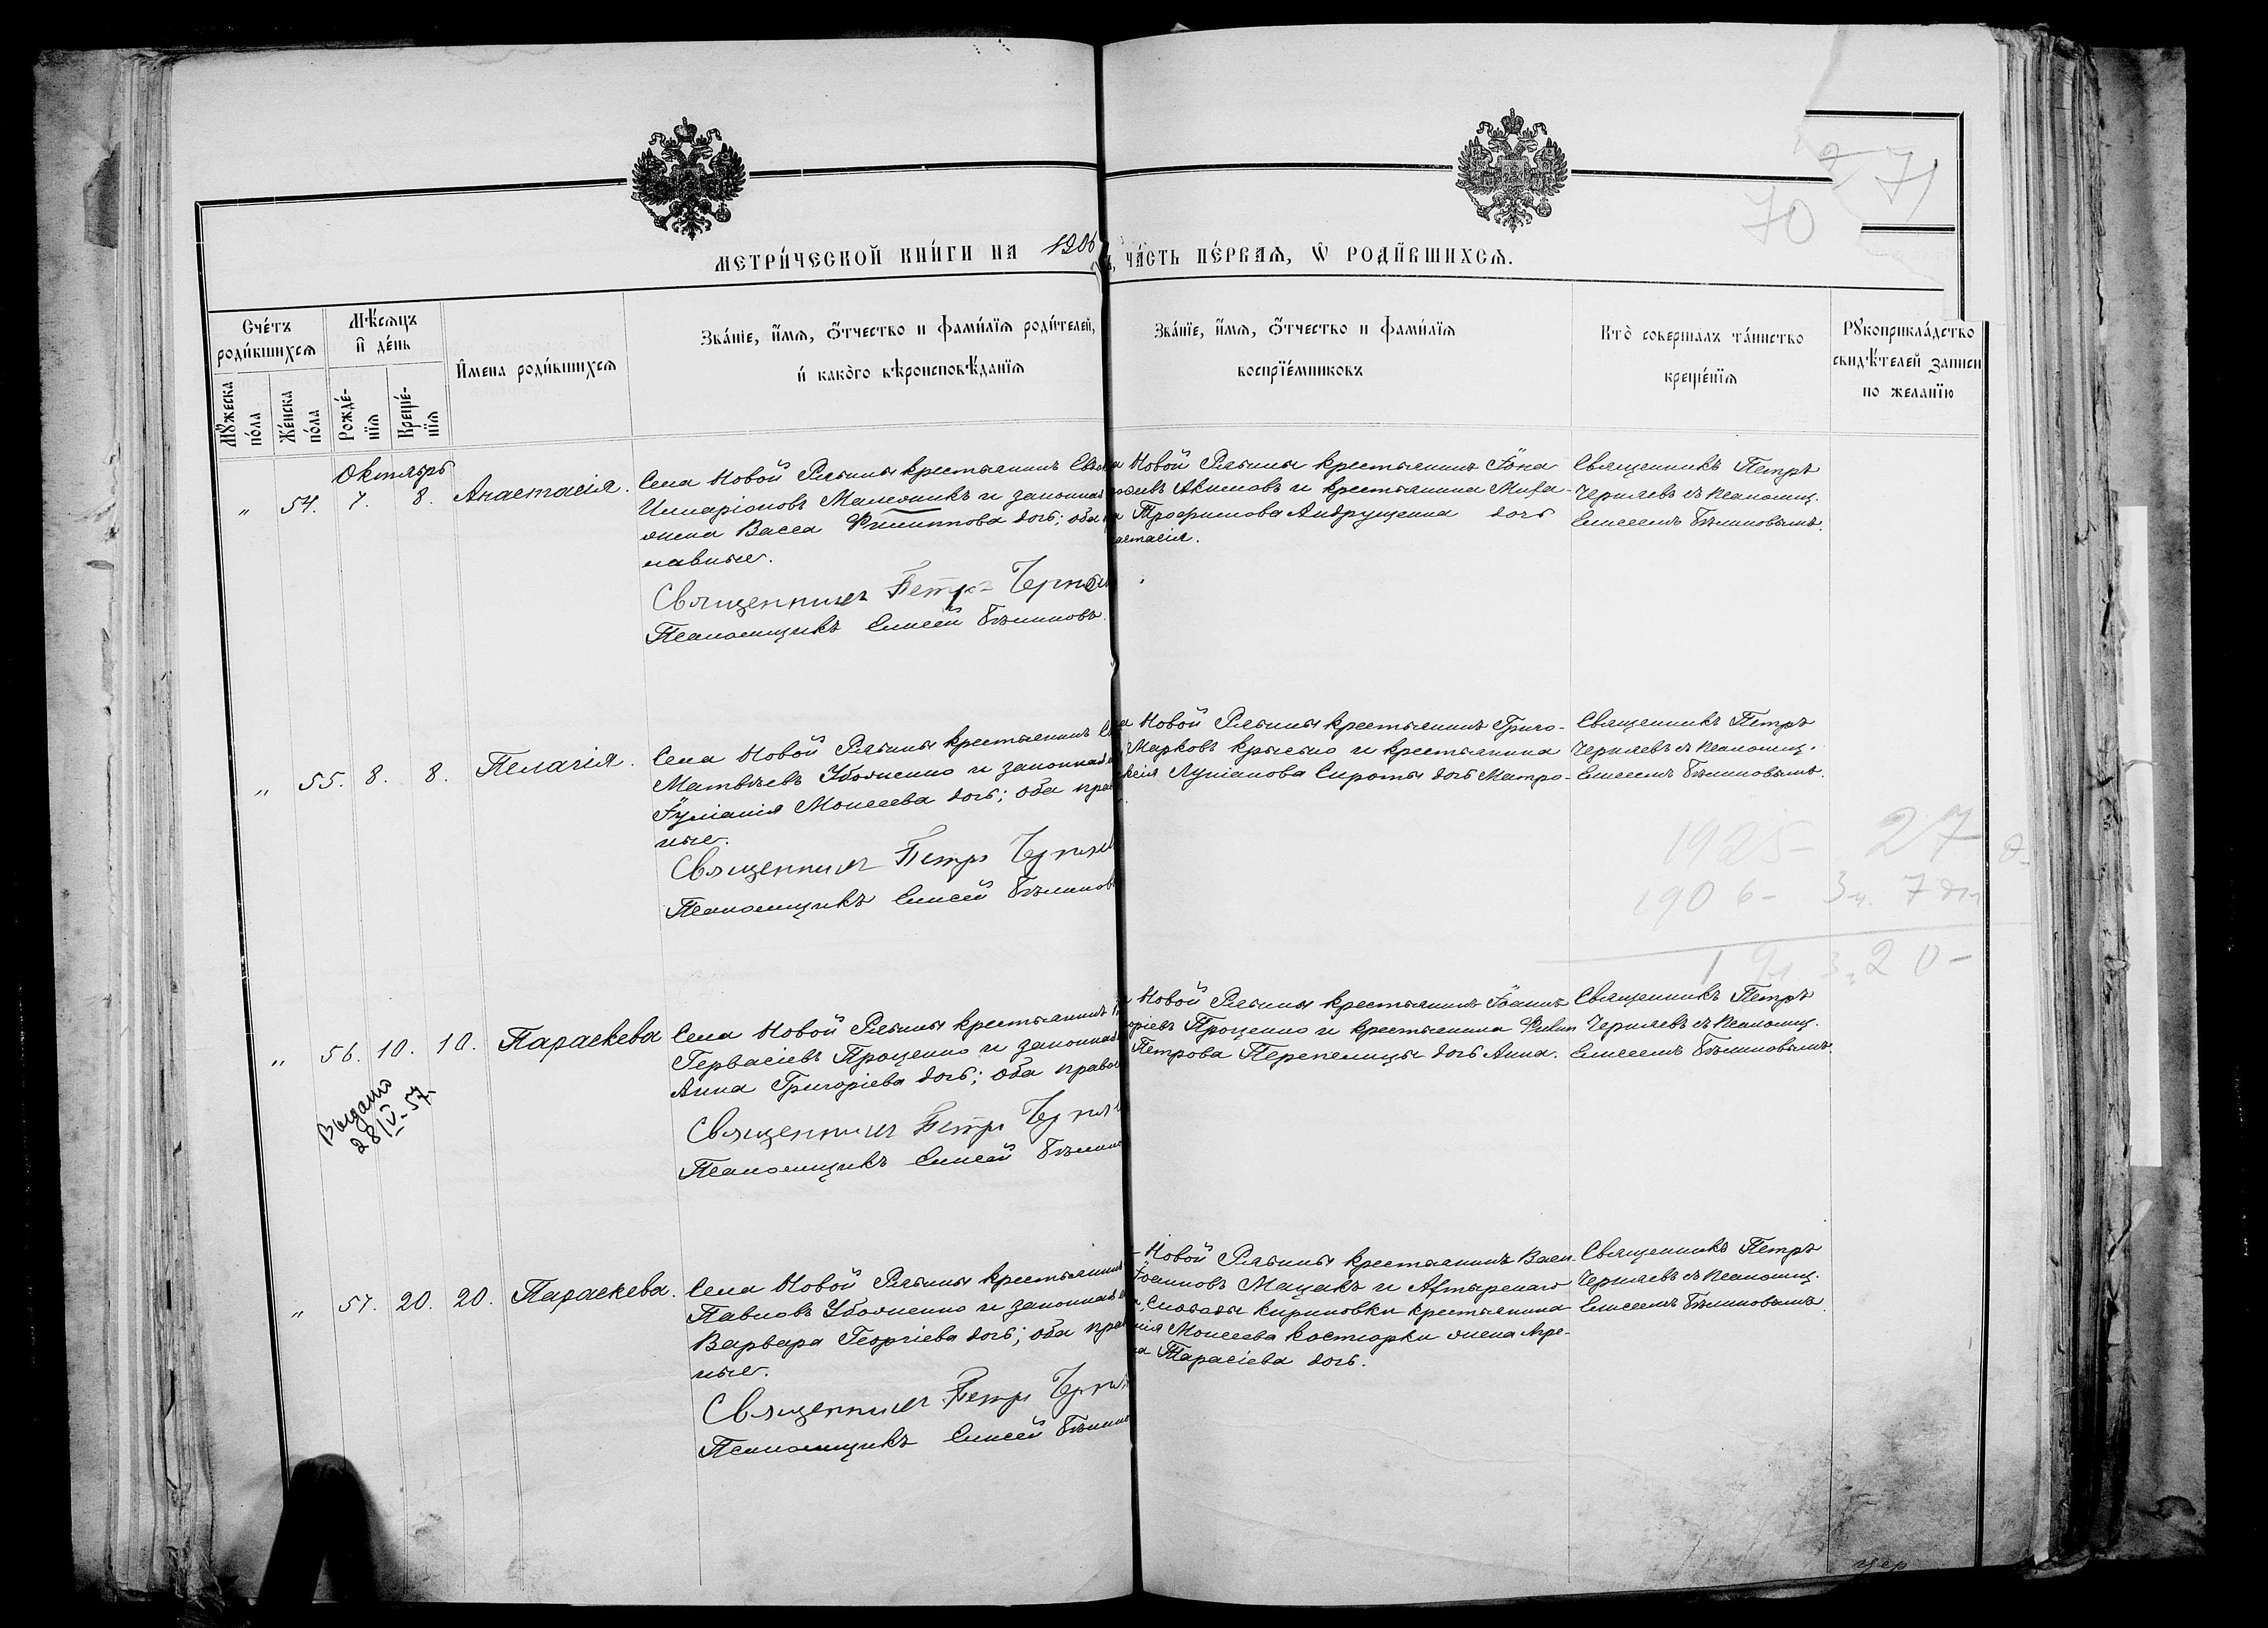 71
70
МЕТРИ́ЧЕСКОЙ КНИ́ГИ НА 1906
ЧА́СТЬ ПЕ́РВАѦ, Ѡ҆ РОДИ́ВШИХСѦ.
Сче́тъ роди́вшихсѧ
Мꙋ́жеска по́ла
Же́нска по́ла
Мѣ́сѧцъ и҆ де́нь
Рожде́-нїѧ
Креще́-нїѧ
И҆мена роди́вшихсѧ
Зва́нїе, и҆́мѧ, ѻ҆́тчество и фами́лїѧ роди́телей,
и҆ како́гѡ вѣроисповѣ́данїѧ
Зва́нїе, и҆́мѧ, ѻ҆́тчество и фами́лїѧ
воспрїе́мниковъ
Кто̀ соверша́лъ та́инство
креще́нїѧ
Рꙋкоприкла́дство
свидѣ́телей записи
по жела́нїю
Октябрь
" 54. 7. 8. Анастасія.
Села Новой Рябины крестьянинъ
Иларіоновъ и законная
жена Васса Филиппова дочь; оба
лавные.
Священникъ Петръ
Псаломщикъ Елисей Бѣликовъ.
Новой Рябины крестьянинъ Іона
Акимовъ и крестьянина
Трофимова Андрущенка дочь
астасія.
Священникъ Петръ
Черняевъ съ псаломщ.
Елисеемъ Бѣликовымъ.
" 55. 8. 8. Пелагія.
Села Новой Рябины крестьянинъ
Матвѣевъ Убоженко и законная
Іуліанія Моисеева дочь; оба
ные.
Священникъ Петръ
Псаломщикъ Елисей Бѣликов
Новой Рябины крестьянинъ Григо-
Марковъ и крестьянина
Лукіанова Сироты дочь Матро-
Священникъ Петръ
Черняевъ съ псаломщ.
Елисеемъ Бѣликовымъ.
1925 - 27
1906 - 3 м. 7 дн
20 -
" 56. 10. 10. Параскева
Выдано
28/V-57
Села Новой Рябины крестьянинъ
Гервасіевъ Проценко и законная
Анна Григоріева дочь; оба право
Священникъ Петръ
Псаломщикъ Елисей
Новой Рябины крестьянинъ Іоаннъ
Проценко и крестьянина
Петрова Перепелицы дочь Анна.
Священникъ Петръ
Черняевъ съ псаломщ.
Елисеемъ Бѣликовымъ.
" 57. 20. 20. Параскева.
Села Новой Рябины крестьянинъ
Павловъ Убоженко и законная
Варвара Георгіева дочь; оба
ные.
Священникъ Петръ
Псаломщикъ Елисей
Новой Рябины крестьянинъ Васи-
Іоанновъ Мацакъ и Ахтырскаго
Слободы Кириковки крестьянина
Моисеева Костюрки жена Агре-
Тарасіева дочь.
Священникъ Петръ
Черняевъ съ псаломщ.
Елисеемъ Бѣликовымъ.